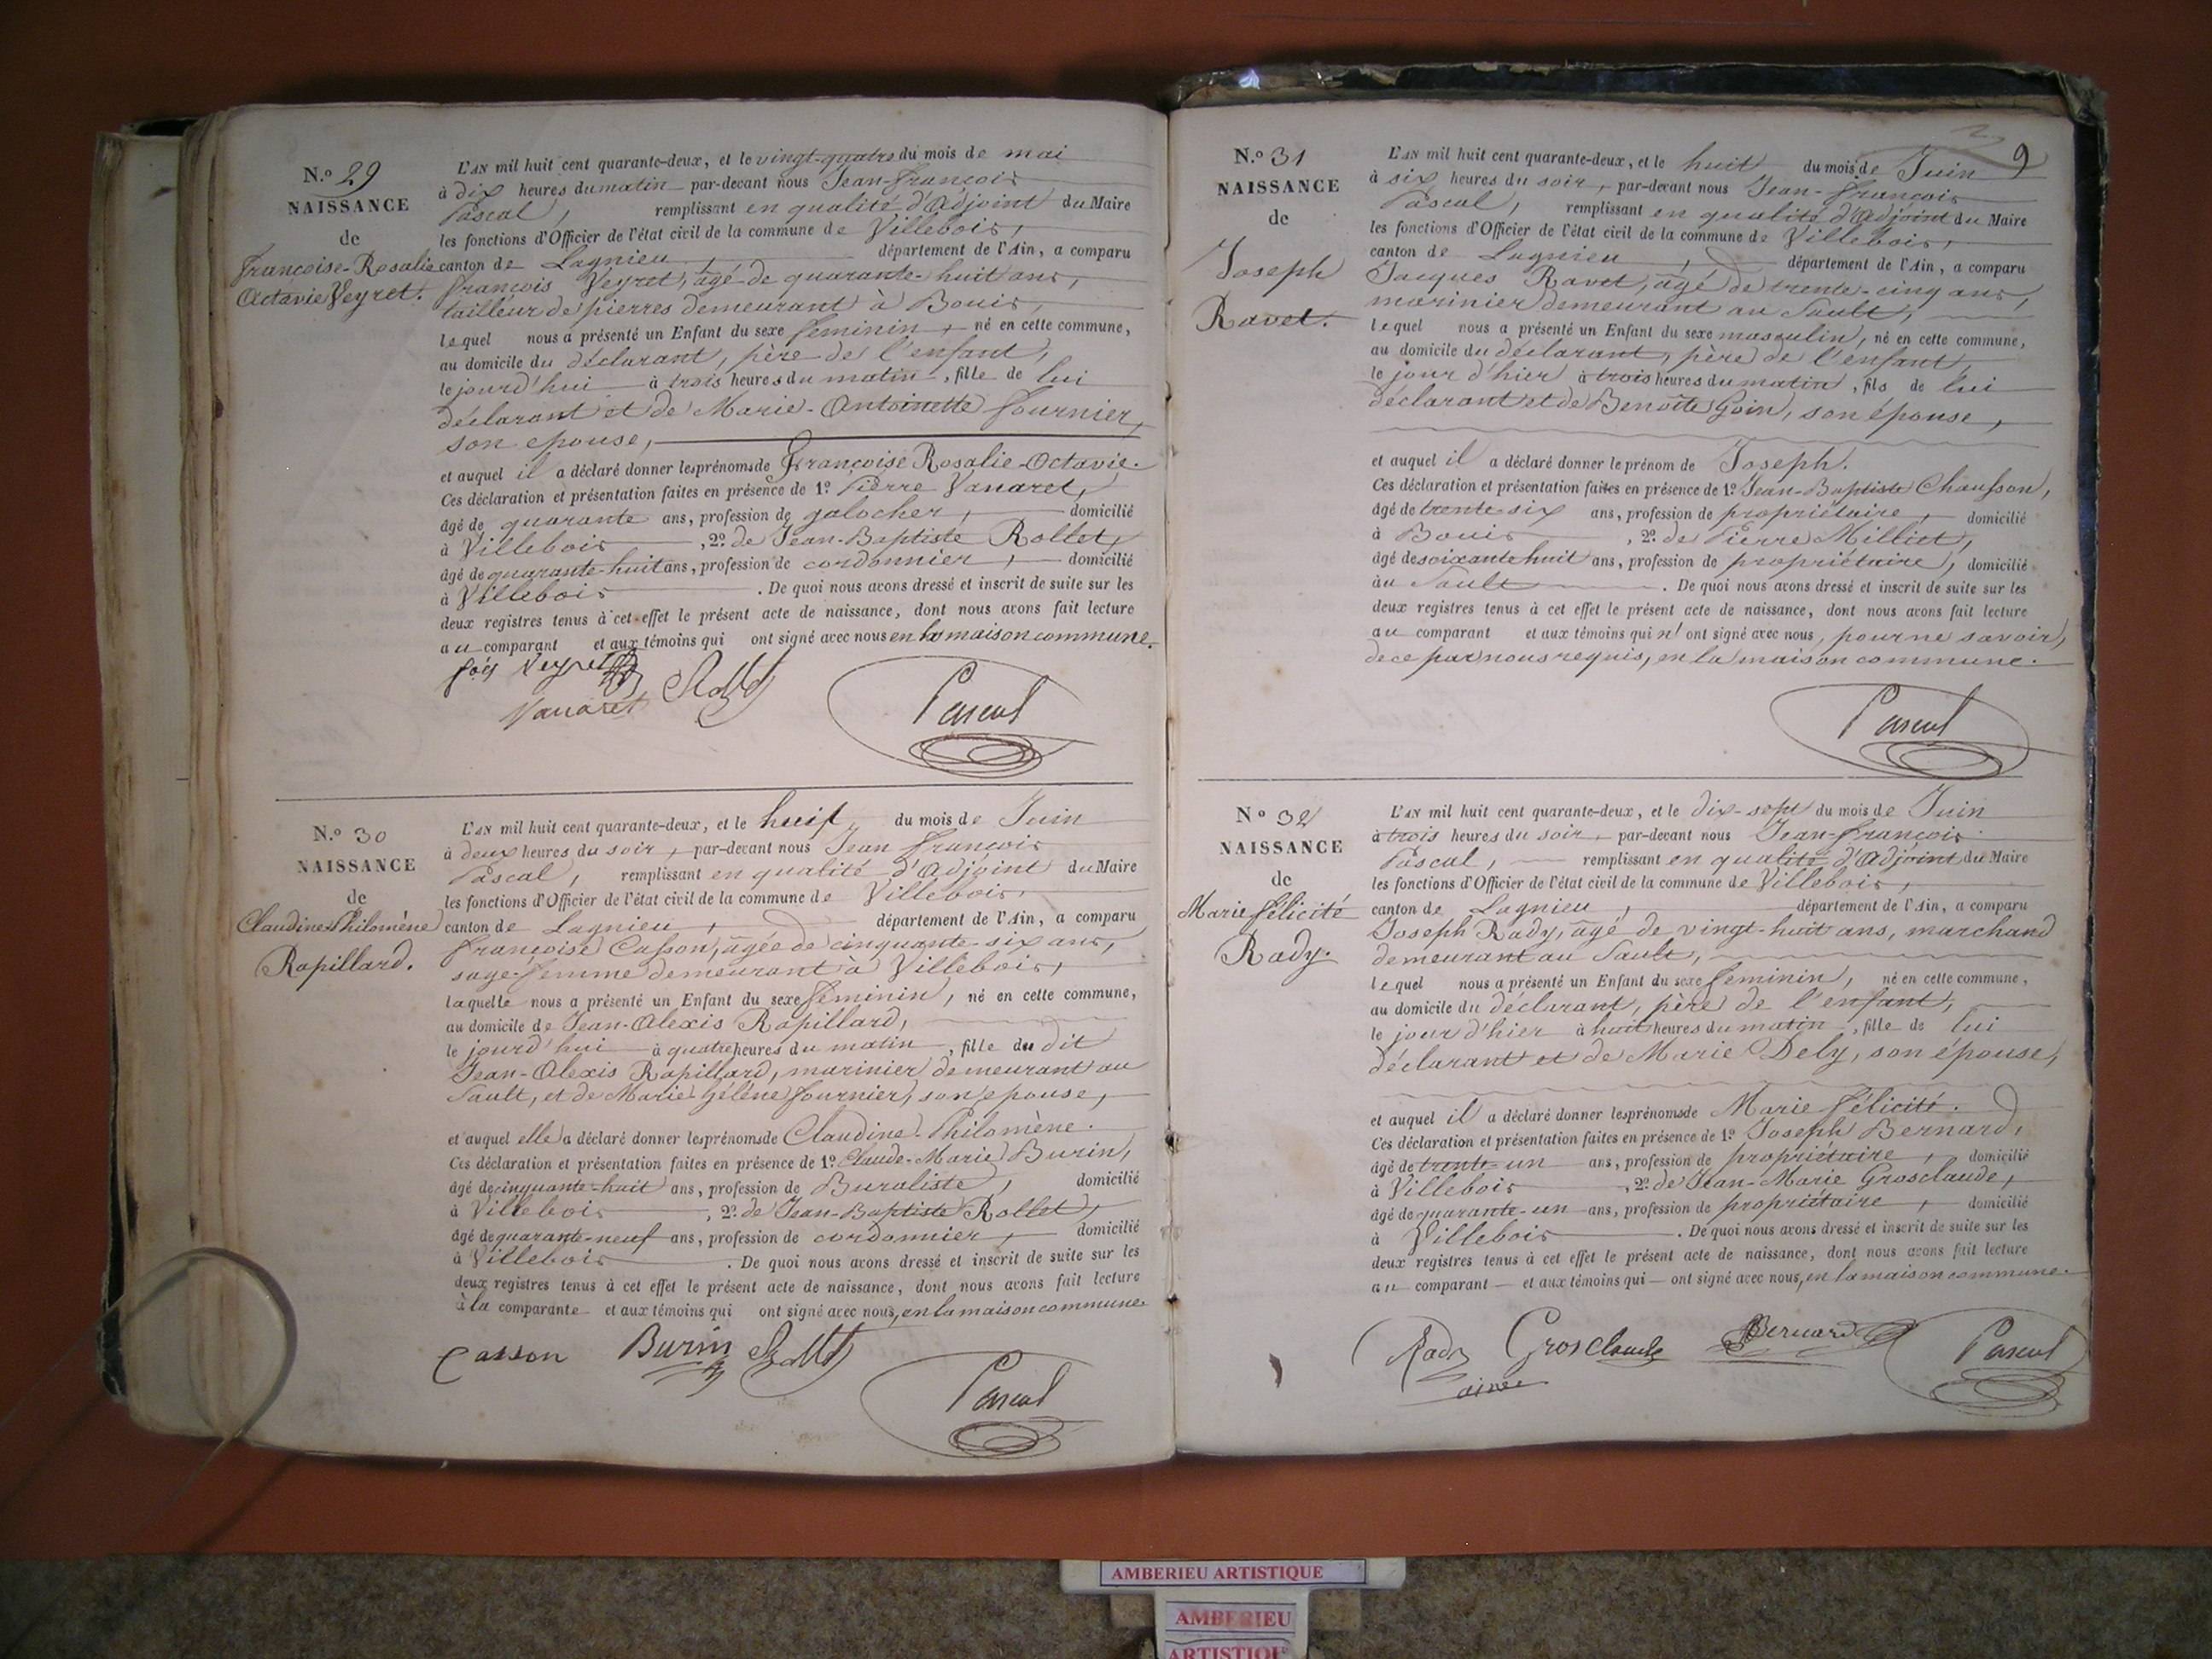 N.o 29
NAISSANCE
de
Françoise-Rosalie
Octavie Veyret.
L'AN mil huit cent quarante-deux, et le vingt-quatre du mois de mai
à dix heures du matin par-devant nous Jean-François
Pascal, remplissant en qualité d'Adjoint du Maire
les fonctions d'Officier de l'état civil de la commune de Villebois,
canton de Lagnieu, département de l'Ain, a comparu
François Veyret, âgé de quarante-huit ans,
tailleur de pierres demeurant à Bouis,
lequel nous a présenté un Enfant du sexe féminin, né en cette commune,
au domicile du déclarant, père de l'enfant,
le jourd'hui à trois heures du matin, fille de lui
déclarant et de Marie-Antoinette Fournier,
son epouse,
et auquel il a déclaré donner les prénoms de Françoise Rosalie-Octavie.
Ces déclaration et présentation faites en présence de 1º Pierre Vanaret,
âgé de quarante ans, profession de galocher, domicilié
à Villebois, 2º de Jean-Baptiste Rollet,
âgé de quarante-huit ans, profession de cordonnier, domicilié
à Villebois. De quoi nous avons dressé et inscrit de suite sur les
deux registres tenus à cet effet le présent acte de naissance, dont nous avons fait lecture
au comparant et aux témoins qui ont signé avec nous en la maison commune.
fois Veyret Rollet
Vanaret Pascal
N.o 30
NAISSANCE
de
Claudine Philomène
Rapillard.
L'AN mil huit cent quarante-deux, et le huit du mois de Juin
à deux heures du soir, par-devant nous Jean François
Pascal, remplissant en qualité d'Adjoint du Maire
les fonctions d'Officier de l'état civil de la commune de Villebois,
canton de Lagnieu, département de l'Ain, a comparu
Françoise Casson, âgée de cinquante-six ans,
sage-femme demeurant à Villebois,
laquelle nous a présenté un Enfant du sexe féminin, né en cette commune,
au domicile de Jean-Alexis Rapillard,
le jourd'hui à quatre heures du matin, fille du dit
Jean-Alexis Rapillard, marinier demeurant au
Sault, et de Marie Hélène Fournier, son épouse,
et auquel elle a déclaré donner les prénoms de Claudine-Philomène.
Ces déclaration et présentation faites en présence de 1º Claude-Marie Burin,
âgé de cinquante-huit ans, profession de Buraliste, domicilié
à Villebois, 2º de Jean-Baptiste Rollet,
âgé de quarante-neuf ans, profession de cordonnier, domicilié
à Villebois. De quoi nous avons dressé et inscrit de suite sur les
deux registres tenus à cet effet le présent acte de naissance, dont nous avons fait lecture
à la comparante et aux témoins qui ont signé avec nous, en la maison commune
Casson Burin Rollet
Pascal
9
N.o 31
NAISSANCE
de
Joseph
Ravet.
L'AN mil huit cent quarante-deux, et le huit du mois de Juin
à six heures du soir, par-devant nous Jean-François
Pascal, remplissant en qualité d'Adjoint du Maire
les fonctions d'Officier de l'état civil de la commune de Villebois,
canton de Lagnieu, département de l'Ain, a comparu
Jacques Ravet, âgé de trente-cinq ans,
marinier demeurant au Sault,
lequel nous a présenté un Enfant du sexe masculin, né en cette commune,
au domicile du déclarant, père de l'enfant,
le jour d'hier à trois heures du matin, fils de lui
déclarant et de Benoîte Goin, son épouse,
et auquel il a déclaré donner le prénom de Joseph.
Ces déclaration et présentation faites en présence de 1º Jean-Baptiste Chausson,
âgé de trente-six ans, profession de propriétaire, domicilié
à Bouis, 2º de Pierre Milliet,
âgé de soixante huit ans, profession de propriétaire, domicilié
au Sault. De quoi nous avons dressé et inscrit de suite sur les
deux registres tenus à cet effet le présent acte de naissance, dont nous avons fait lecture
au comparant et aux témoins qui n'ont signé avec nous, pour ne savoir,
de ce par nous requis, en la maison commune.
Pascal
No 32
NAISSANCE
de
Marie Félicité
Rady.
L'AN mil huit cent quarante-deux, et le dix-sept du mois de Juin
à trois heures du soir, par-devant nous Jean-François
Pascal, remplissant en qualité d'Adjoint du Maire
les fonctions d'Officier de l'état civil de la commune de Villebois,
canton de Lagnieu, département de l'Ain, a comparu
Joseph Rady, âgé de vingt-huit ans, marchand
demeurant au Sault,
lequel nous a présenté un Enfant du sexe féminin, né en cette commune,
au domicile du déclarant, père de l'enfant,
le jour d'hier à huit heures du matin, fille de lui
déclarant et de Marie Dely, son épouse,
et auquel il a déclaré donner les prénoms de Marie Félicité.
Ces déclaration et présentation faites en présence de 1º Joseph Bernard,
âgé de trente-un ans, profession de propriétaire, domicilié
à Villebois, 2º de Jean-Marie Grosclaude,
âgé de quarante-un ans, profession de propriétaire, domicilié
à Villebois. De quoi nous avons dressé et inscrit de suite sur les
deux registres tenus à cet effet le présent acte de naissance, dont nous avons fait lecture
au comparant et aux témoins qui ont signé avec nous, en la maison commune.
Rady Grosclaude Bernard Pascal
ainée
AMBERIEU ARTISTIQUE
AMBERIEU
ARTISTIQUE